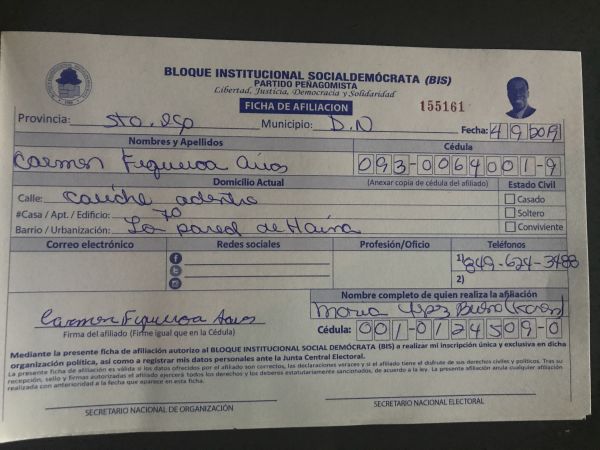 BLOQUE INSTITUCIONAL SOCIALDEMÓCRATA (BIS)
PARTIDO PEÑAGOMISTA
Libertad, Justicia, Democracia y Solidaridad
FICHA DE AFILIACION
155161
Provincia: Sto. Dgo Municipio: D.N Fecha: 4 9 2019
Nombres y Apellidos Cédula
Carmen Figueroa 093-0064001-9
Domicilio Actual (Anexar copia de cédula del afiliado) Estado Civil
Calle: adentro Casado
#Casa / Apt. / Edificio: 70 Soltero
Barrio / Urbanización: La pared de Haina Conviviente
Correo electrónico Redes sociales Profesión/Oficio Teléfonos
1) 849-624-3488
2)
Nombre completo de quien realiza la afiliación
Maria
Carmen Figueroa
Firma del afiliado (Firme igual que en la Cédula) Cédula: 001-0124509-0
Mediante la presente ficha de afiliación autorizo al BLOQUE INSTITUCIONAL SOCIAL DEMÓCRATA (BIS) a realizar mi inscripción única y exclusiva en dicha
organización política, así como a registrar mis datos personales ante la Junta Central Electoral.
La presente ficha de afiliación es válida si los datos ofrecidos por el afiliado son correctos, las declaraciones veraces y si el afiliado tiene el disfrute de sus derechos civiles y políticos. Tras su
recepción, sello y firmas autorizadas el afiliado ejercerá todos los derechos y los deberes estatutariamente sancionados, de acuerdo a la ley. La presente afiliación anula cualquier afiliación
realizada con anterioridad a la fecha que aparece en esta ficha.
SECRETARIO NACIONAL DE ORGANIZACIÓN SECRETARIO NACIONAL ELECTORAL